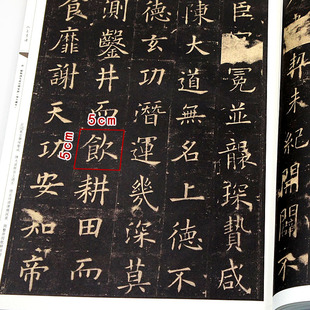 契未紀開闢不
臣冕並襲琛贄咸
陳大道無名上德不
德玄功潛運幾深莫
測鑿井而飲耕田而
食靡謝天功安知帝
5cm
5cm